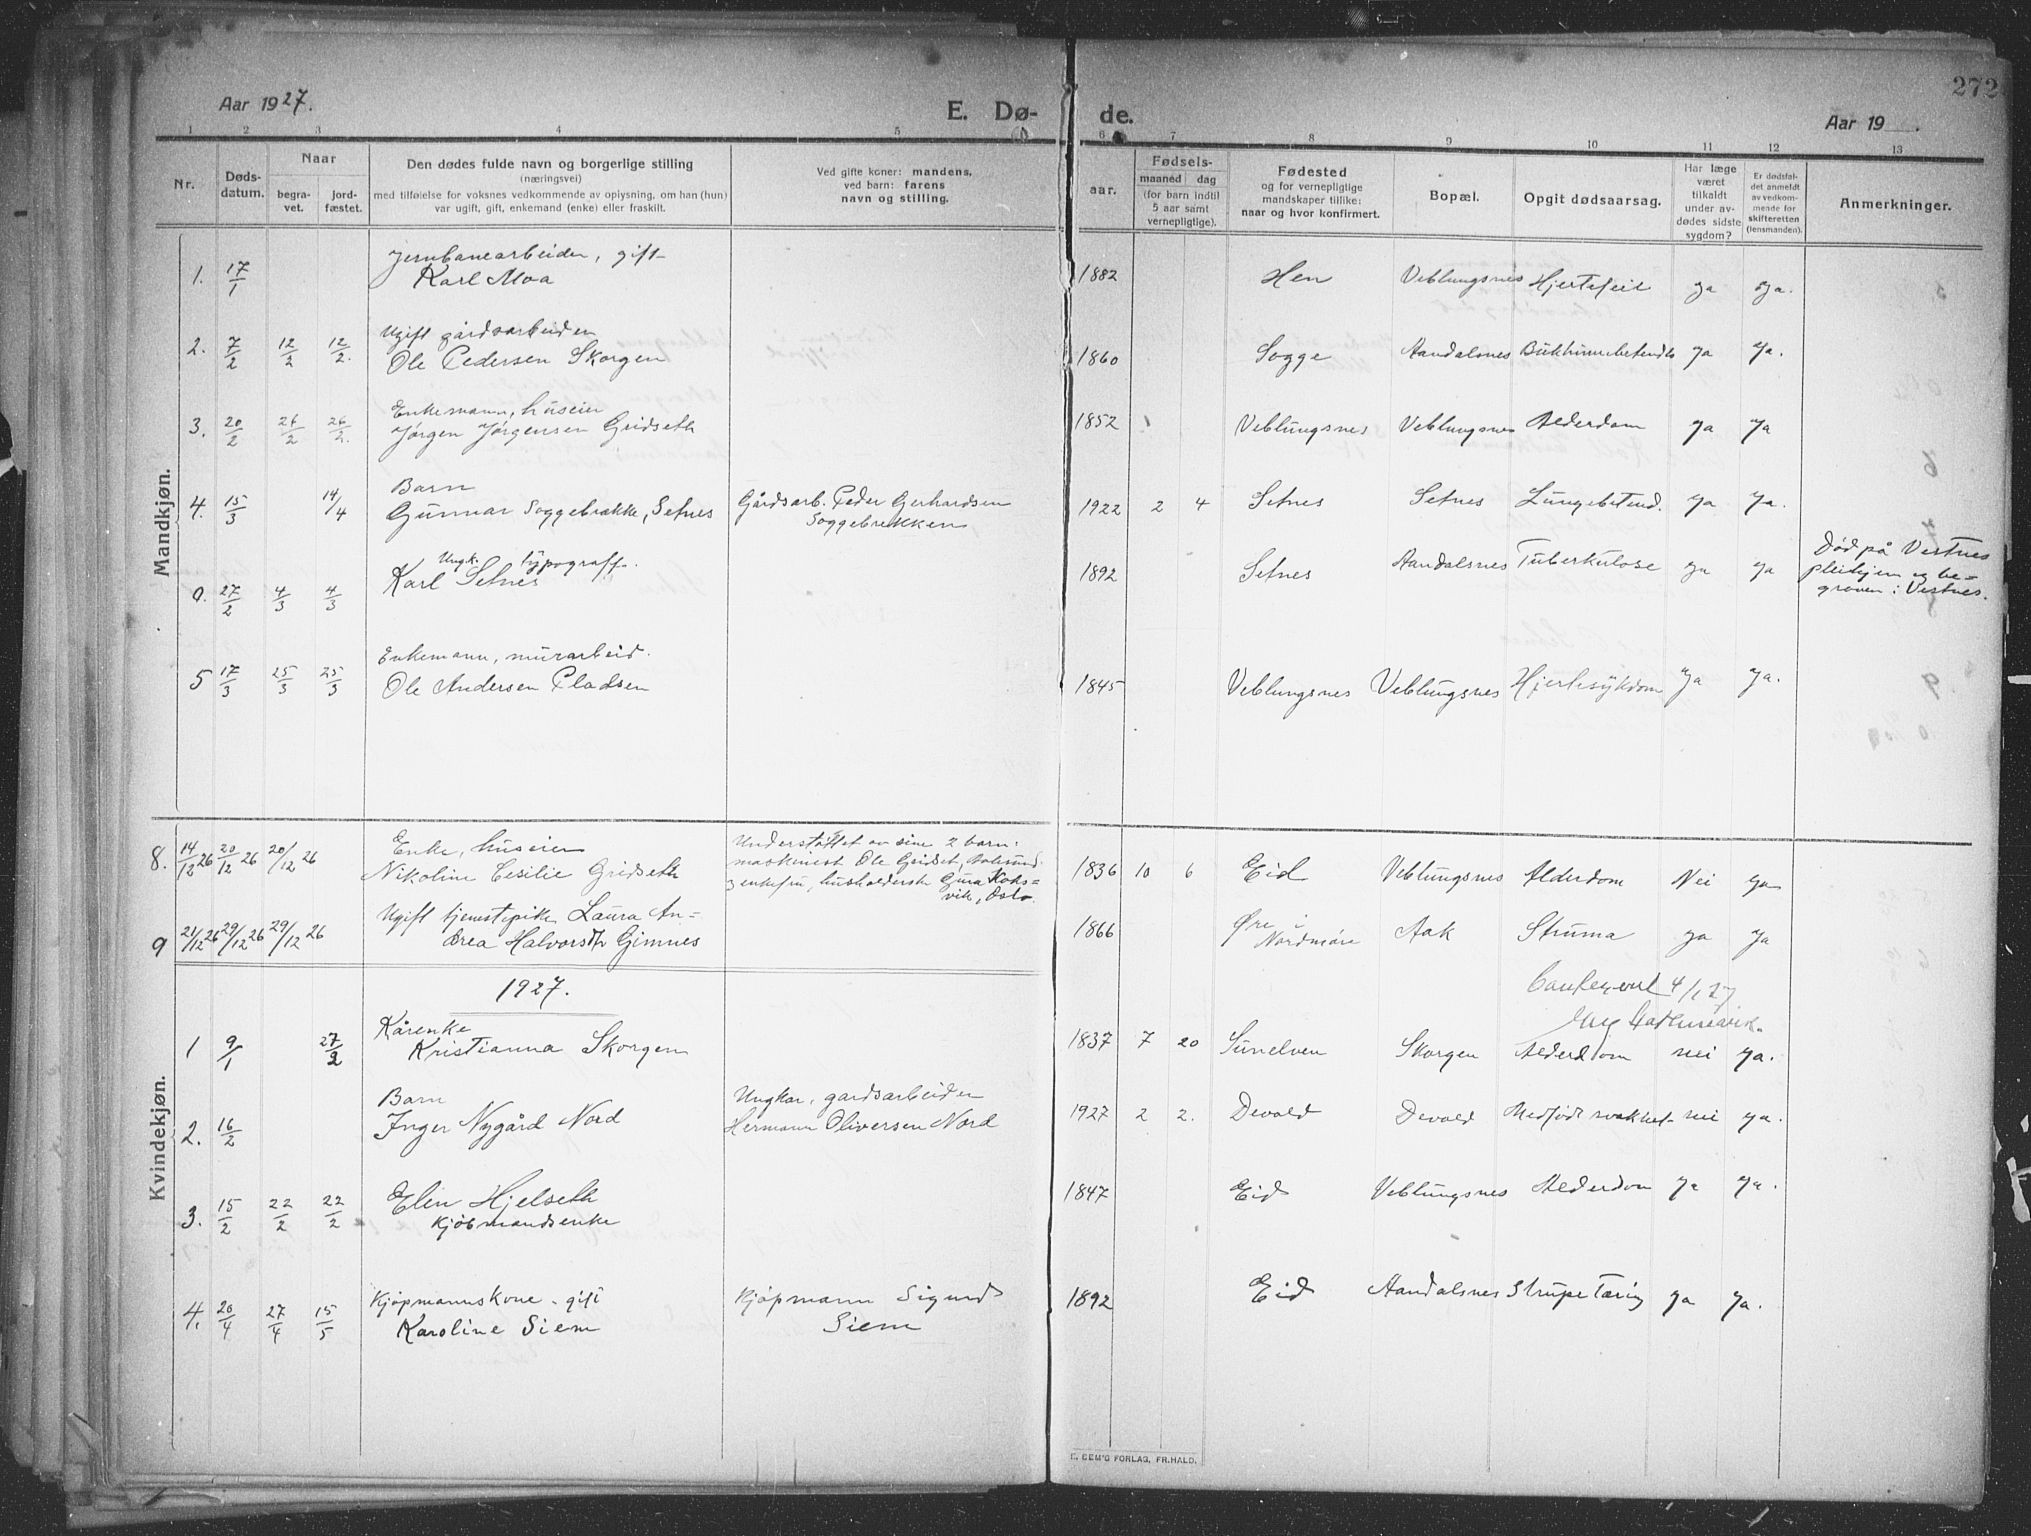 272
Aar 1927.
E. Dø- de.
Aar 19 .
1 2 3 4 5 6 7 8 9 10 11 12 13
Nr.
Døds-
datum.
Naar
begra-
vet.
jord-
fæstet.
Den dødes fulde navn og borgerlige stilling
(næringsvei)
med tilføielse for voksnes vedkommende av oplysning, om han (hun)
var ugift, gift, enkemand (enke) eller fraskilt.
Ved gifte koner: mandens,
ved barn: farens
navn og stilling.
aar.
Fødsels-
maaned dag
(for barn indtil
5 aar samt
vernepligtige).
Fødested
og for vernepligtige
mandskaper tillike:
naar og hvor konfirmert.
Bopæl.
Opgit dødsaarsag.
Har læge
været
tilkaldt
under av-
dødes sidste
sygdom?
Er dødsfal-
det anmeldt
av vedkom-
mende for
skifteretten
(lensmanden).
Anmerkninger.
Mandkjøn.
Jernbanearbeider, gift
1. 17/1 Karl Moa 1882 Hen Veblungsnes Hjertefeil ja ja.
Ugift gårdsarbeider
2. 7/2 12/2 12/2. Ole Pedersen Skorgen 1860 Sogge Aandalsnes Bukhinnebetendelse ja ja.
Enkemann, huseier
3. 20/2 26/2 26/2. Jørgen Jørgensen Gridseth 1852 Veblungsnes Veblungsnes Alderdom ja ja
Barn
4. 15/3 14/4 Gunnar Soggebrække, Setnes Gårdsarb. Peder Gerhardsen
Soggebrekken 1922 2 4 Setnes Setnes Lungebetend. ja ja.
Ungk. typograff.
0. 27/2 4/3 4/3 Karl Setnes 1892 Setnes Aandalsnes Tuberkulose ja ja Død på Vestnes
pleiehjem og be-
graven i Vestnes.
Enkemann, murarbeid.
5 17/3 25/3 25/3 Ole Andersen Pladsen 1845 Veblungsnes Veblungsnes Hjertesykdom ja ja.
Kvindekjøn.
Enke, huseier
8. 14/12 26 20/12 26 20/12 26 Nikoline Cesilie Gridseth Understøttet av sine 2 barn:
maskinest Ole Gridset, Aalesund
enkefru, husholderske Gura Koks-
vik, Oslo. 1836 10 6 Eid Veblungsnes Alderdom Nei ja
9 21/12 26 29/12 26 29/12 26 Ugift tjenestepike Laura An-
drea Halvorsdtr Gimnes 1866 Øre i
Nordmøre Aak Struma ja ja
1927.
4/1 27
Kårenke
1 9/1 27/2 Kristianna Skorgen 1837 7 20 Sunelven Skorgen Alderdom nei ja.
Barn
2. 16/2 Inger Nygård Nord Ungkar, gardsarbeider
Hermann Oliversen Nord 1927 2 2. Devold Devold Medfødt svakhet nei ja.
3. 15/2 22/2 22/2 Elen Hjelseth
Kjøbmandsenke 1847 Eid Veblungsnes Alderdom ja ja.
Kjøpmannskone, gift
4. 20/4 27/4 15/5 Karoline Siem Kjøpmann Sigurd
Siem 1892 Eid Aandalsnes Strupetæring ja ja.
E. SEM'S FORLAG, FR.HALD.